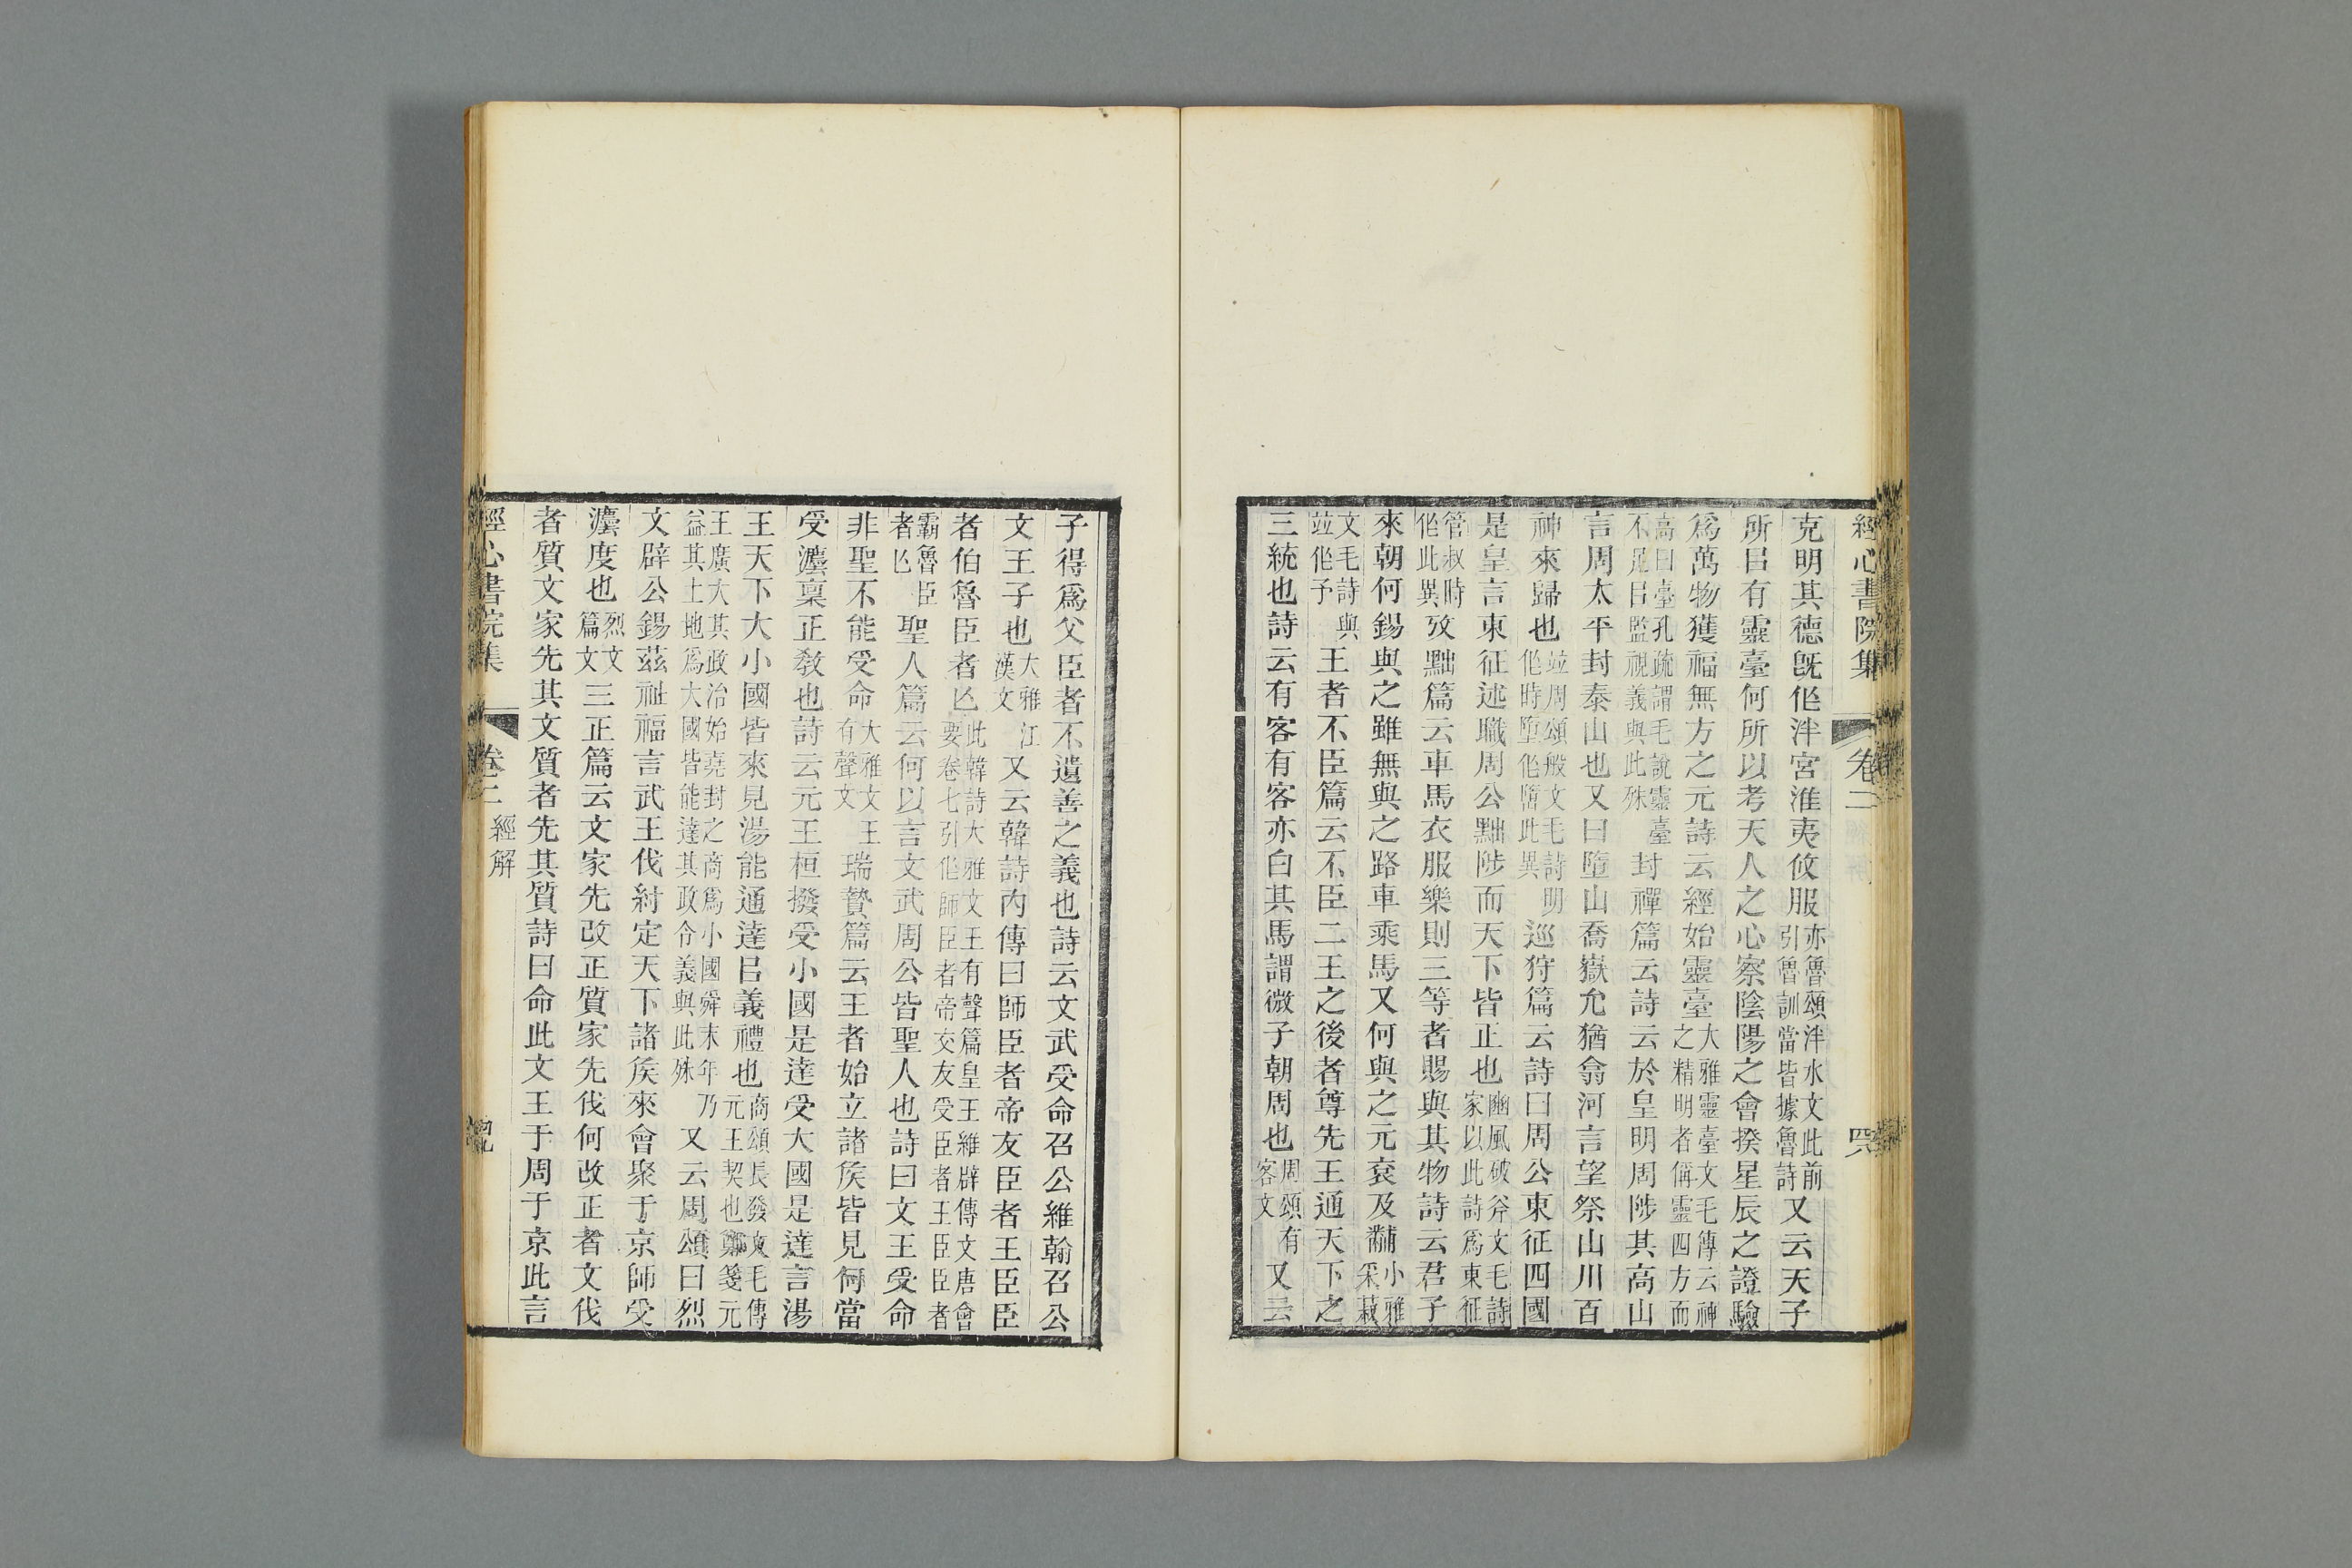 經心書院集 卷二 四六
克明其德旣作泮宮淮夷攸服亦魯頌泮水文此前引魯訓當皆據魯詩又云天子
所㠯有靈臺何所以考天人之心察陰陽之會揆星辰之證驗
爲萬物獲福無方之元詩云經始靈臺大雅靈臺文毛傳云神之精明者偁靈四方而
高曰臺孔疏謂毛說靈臺不足㠯監視義與此殊封禪篇云詩云於皇明周陟其高山
言周太平封泰山也又曰墮山喬嶽允猶翕河言望祭山川百
神來歸也竝周頌般文毛詩明作時墮作隋此異巡狩篇云詩曰周公東征四國
是皇言東征述職周公黜陟而天下皆正也豳風破斧文毛詩家以此詩爲東征
管叔時作此異攷黜篇云車馬衣服樂則三等者賜與其物詩云君子
來朝何錫與之雖無與之路車乘馬又何與之元袞及黼小雅采菽
文毛詩與竝作予王者不臣篇云不臣二王之後者尊先王通天下之
三統也詩云有客有客亦白其馬謂微子朝周也周頌有客文又云
子得爲父臣者不遺善之義也詩云文武受命召公維翰召公
文王子也大雅江漢文又云韓詩內傳曰師臣者帝友臣者王臣臣
者伯魯臣者亾此韓詩大雅文王有聲篇皇王維辟傳文唐會要卷七引作師臣者帝交友受臣者王臣臣者
霸魯臣者亾聖人篇云何以言文武周公皆聖人也詩曰文王受命
非聖不能受命大雅文王有聲文瑞贄篇云王者始立諸矦皆見何當
受灋稟正敎也詩云元王桓撥受小國是達受大國是達言湯
王天下大小國皆來見湯能通達㠯義禮也商頌長發文毛傳元王契也鄭箋元
王廣大其政治始堯封之商爲小國舜末年乃益其土地爲大國皆能達其政令義與此殊又云周頌曰烈
文辟公錫茲祉福言武王伐紂定天下諸矦來會聚于京師受
灋度也烈文篇文三正篇云文家先改正質家先伐何改正者文伐
者質文家先其文質者先其質詩曰命此文王于周于京此言
經心書院集 卷二 經解